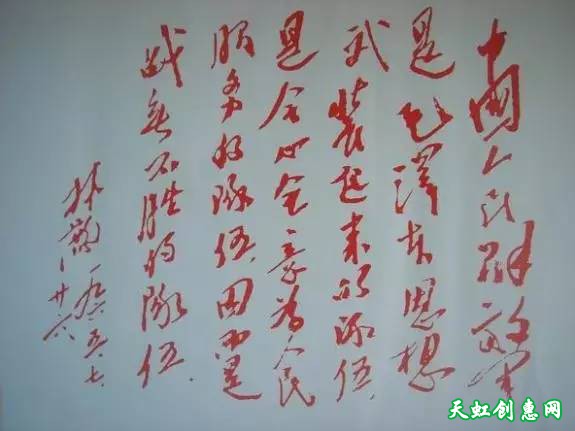 中國人民解放军
是毛澤东思想
武装起来的隊伍,
是全心全意为人民
服务的隊伍,因而是
战無不胜的隊伍.
林彪 一九六五、七、
廿六
天虹创惠网